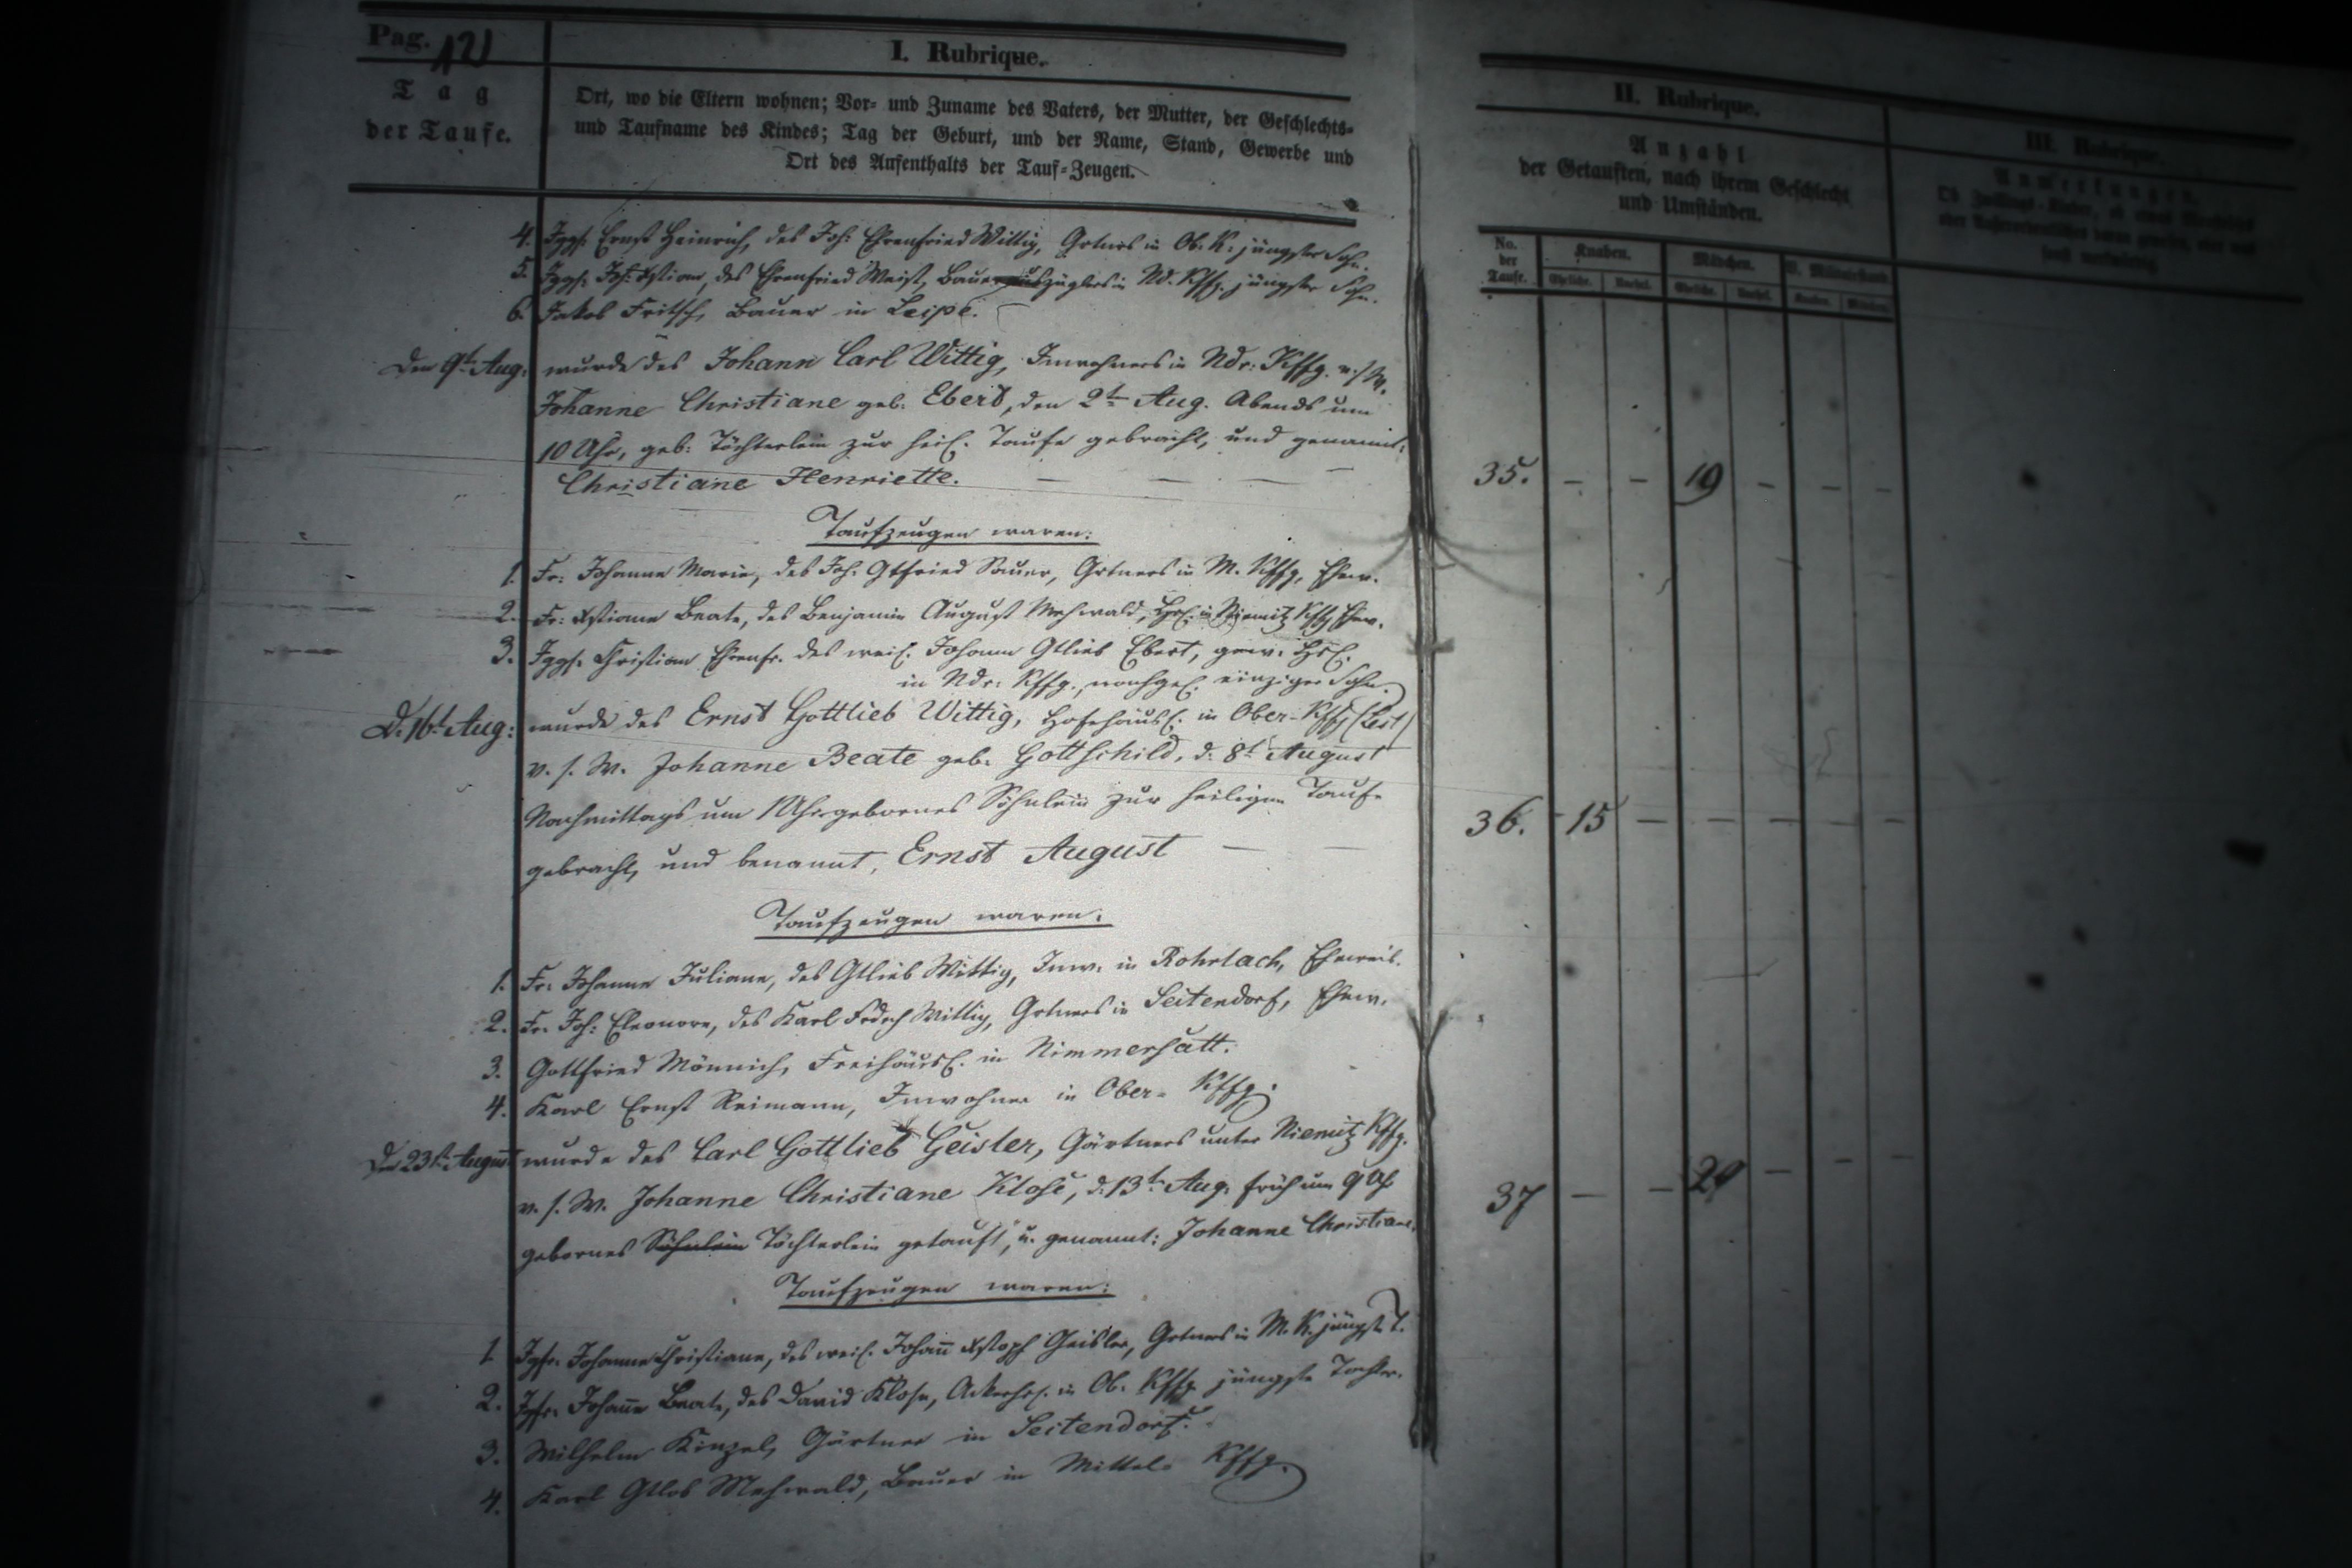 Pag. 121
I. Rubrique.
Tag
der Taufe.
Ort, wo die Eltern wohnen; Vor- und Zuname des Vaters, der Mutter, der Geschlechts-
und Taufname des Kindes; Tag der Geburt, und der Name, Stand, Gewerbe und
Ort des Aufenthalts der Tauf-Zeugen.
4. Jggs. Ernst Heinrich, des Joh: Ehrenfried Wittig, Grtners in Ob. K. jüngster Sohn.
5. Jggs. Joh: Xstian, des Ehrenfried Weist, Bauerauszüglers in Nd. Kffg. jüngster Sohn.
6. Jakob Fritsch, Bauer in Leipe.
Den 9t Aug: wurde des Johann Carl Wittig, Inwohners in Ndr: Kffg. v. s. W.
Johanne Christiane geb. Ebert, den 2t Aug. Abends um
10 Uhr, geb: Töchterlein zur heil. Taufe gebracht, und genannt:
Christiane Henriette. — — — —
Taufzeugen waren:
1. Fr: Johanne Marie, des Joh. Gtfried Sauer, Grtners in M. Kffg. Ehew.
2. Fr: Xstiane Beate, des Benjamin August Mehwald, Hsl. in Niemitz Kffg Ehew.
3. Jggs. Christian Ehrenfr. des weil. Johann Gtlieb Ebert, gew. Hsl.
in Ndr: Kffg., nachgel. einziger Sohn.
D. 16t Aug: wurde des Ernst Gottlieb Wittig, Hofehäusl. in Ober-Kffg
v. s. W. Johanne Beate geb. Gottschild, d. 8t August
Nachmittags um 1 Uhr gebornes Söhnlein zur heiligen Taufe
gebracht, und benannt, Ernst August — —
Taufzeugen waren:
1. Fr. Johanne Juliane, des Gtlieb Wittig, Inw. in Rohrlach, Eheweib.
2. Fr. Joh: Eleonore, des Karl Frdrch Wittig, Grtners in Seitendorf, Ehew.
3. Gottfried Mönnich, Freihäusl. in Nimmersatt.
4. Karl Ernst Reimann, Inwohner in Ober-Kffg.
Den 23t August wurde des Carl Gottlieb Geisler, Gärtners unter Niemitz Kffg.
v. s. W. Johanne Christiane Klose, d. 13t Aug. früh um 9 Uhr
gebornes Söhnlein Töchterlein getauft, u. genannt: Johanne Christiane.
Taufzeugen waren:
1. Jgfr. Johanne Christiane, des weil. Johañ Xstoph Geisler, Grtners in M. K. jüngste T.
2. Jgfr. Johañe Beate, des David Klose, Ackerhsl. in Ob. Kffg. jüngste Tochter.
3. Wilhelm Kinzel, Gärtner in Seitendorf.
4. Karl Gtlob Mehwald, Bauer in Mittel-Kffg.
II. Rubrique.
Anzahl
der Getauften, nach ihrem Geschlecht
und Umständen.
No. der Taufe.
Knaben.
Mädchen.
Ehrliche.
Unehel.
Ehrliche.
Unehel.
35. — — 19 — — —
36. 15 — — — — —
37 — — 20 — — —
III. Rubrique.
Anmerkungen.